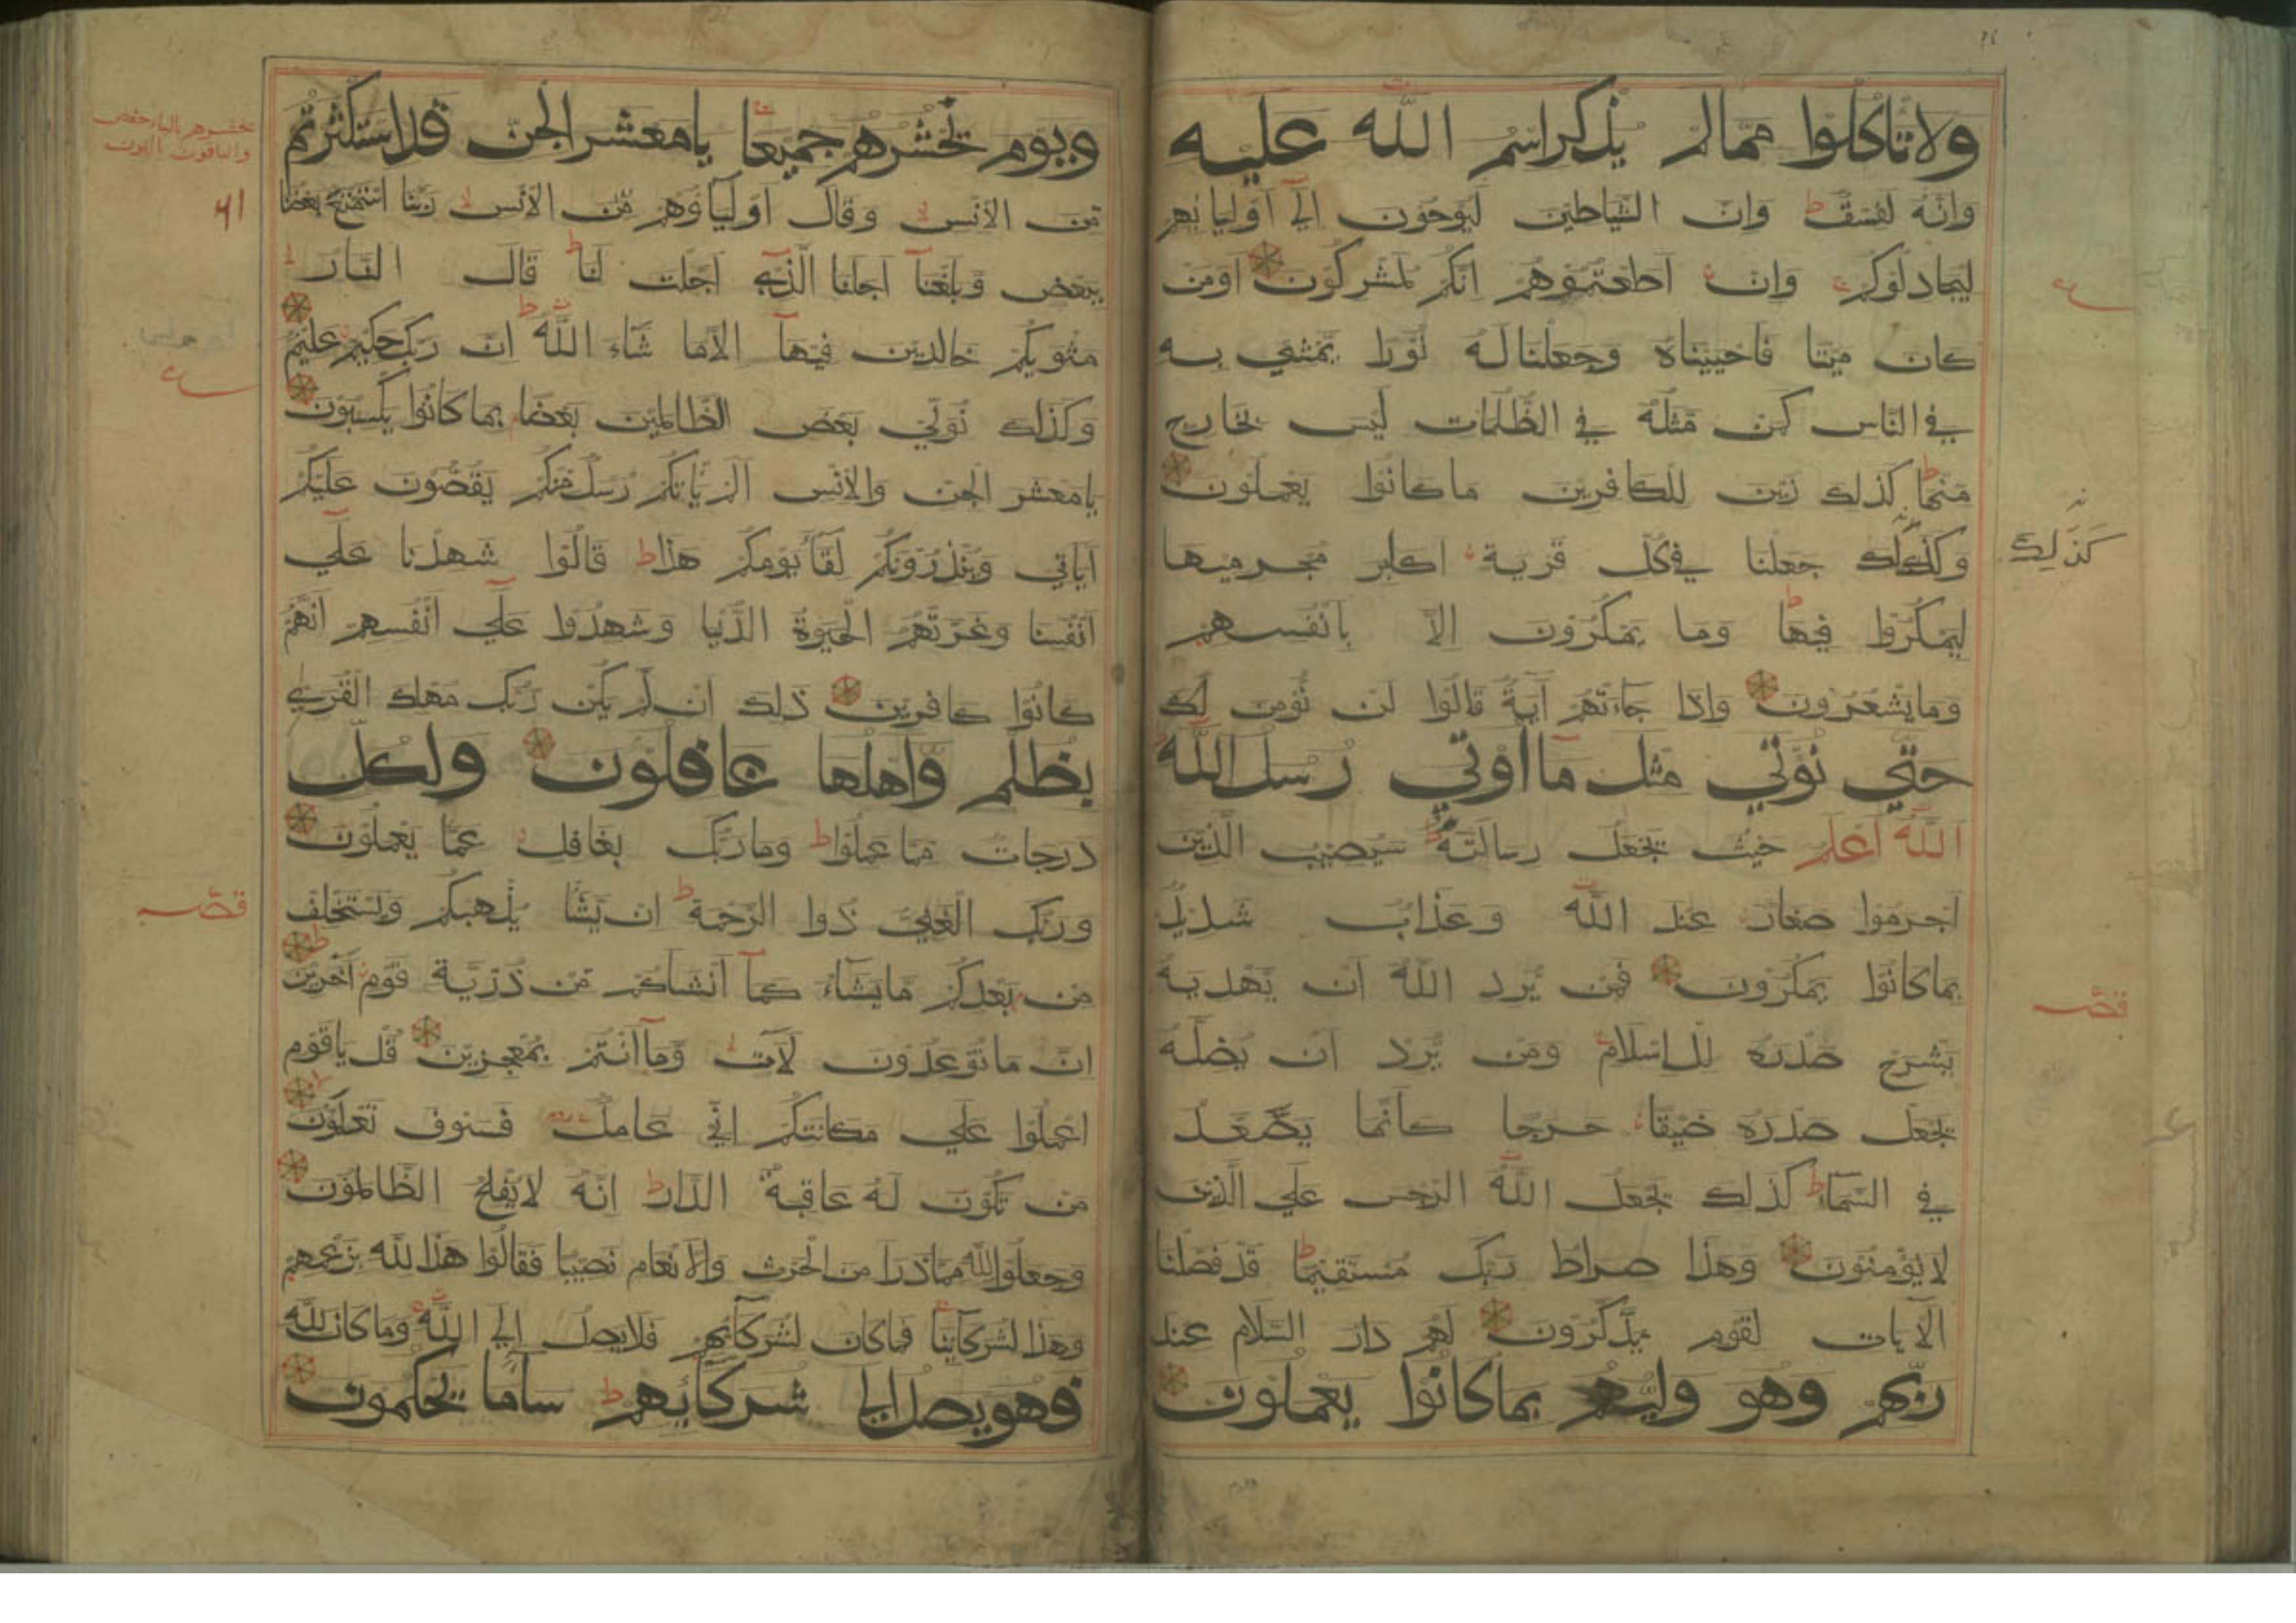 ولا تاكلوا مما لم يذكر اسم الله عليه
وانه لفسق وان الشياطين ليوحون الي اوليائهم
ليجادلوكم وان اطعتموهم انكم لمشركون اومن
كان ميتا فاحييناه وجعلنا له نورا يمشي به
في الناس كمن مثله في الظلمات ليس بخارج
منها كذلك زين للكافرين ما كانوا يعملون
وكذلك جعلنا في كل قرية اكابر مجرميها
كذلك
ليمكروا فيها وما يمكرون الا بانفسهم
وما يشعرون واذا جاءتهم آية قالوا لن نؤمن لك
حتي نؤتي مثل ما اوتي رسل الله
الله اعلم حيث يجعل رسالته سيصيب الذين
اجرموا صغار عند الله وعذاب شديد
بما كانوا يمكرون فمن يرد الله ان يهديه
يشرح صدره للاسلام ومن يرد ان يضله
يجعل صدره ضيقا حرجا كانما يصعد
في السماء كذلك يجعل الله الرجس علي الذين
لا يؤمنون وهذا صراط ربك مستقيما قد فصلنا
الآيات لقوم يذكرون لهم دار السلام عند
ربهم وهو وليهم بما كانوا يعملون
ويوم نحشرهم جميعا يا معشر الجن قد استكثرتم
من الانس وقال اولياؤهم من الانس ربنا استمتع بعضنا
ببعض وبلغنا اجلنا الذي اجلت لنا قال النار
مثويكم خالدين فيها الا ما شاء الله ان ربك حكيم عليم
وكذلك نولي بعض الظالمين بعضا بما كانوا يكسبون
يا معشر الجن والانس الم ياتكم رسل منكم يقصون عليكم
آياتي وينذرونكم لقاء يومكم هذا قالوا شهدنا علي
انفسنا وغرتهم الحيوة الدنيا وشهدوا علي انفسهم انهم
كانوا كافرين ذلك ان لم يكن ربك مهلك القري
بظلم واهلها غافلون ولكل
درجات مما عملوا وما ربك بغافل عما يعملون
وربك الغني ذوا الرحمة ان يشا يذهبكم ويستخلف
من بعدكم ما يشاء كما انشاكم من ذرية قوم آخرين
ان ما توعدون لآت وما انتم بمعجزين قل يا قوم
اعملوا علي مكانتكم اني عامل فسوف تعلمون
من تكون له عاقبة الدار انه لا يفلح الظالمون
وجعلوا لله مما ذرا من الحرث والانعام نصيبا فقالوا هذا لله بزعمهم
وهذا لشركاينا فما كان لشركائهم فلا يصل الي الله وما كان لله
فهو يصل الي شركائهم ساء ما يحكمون